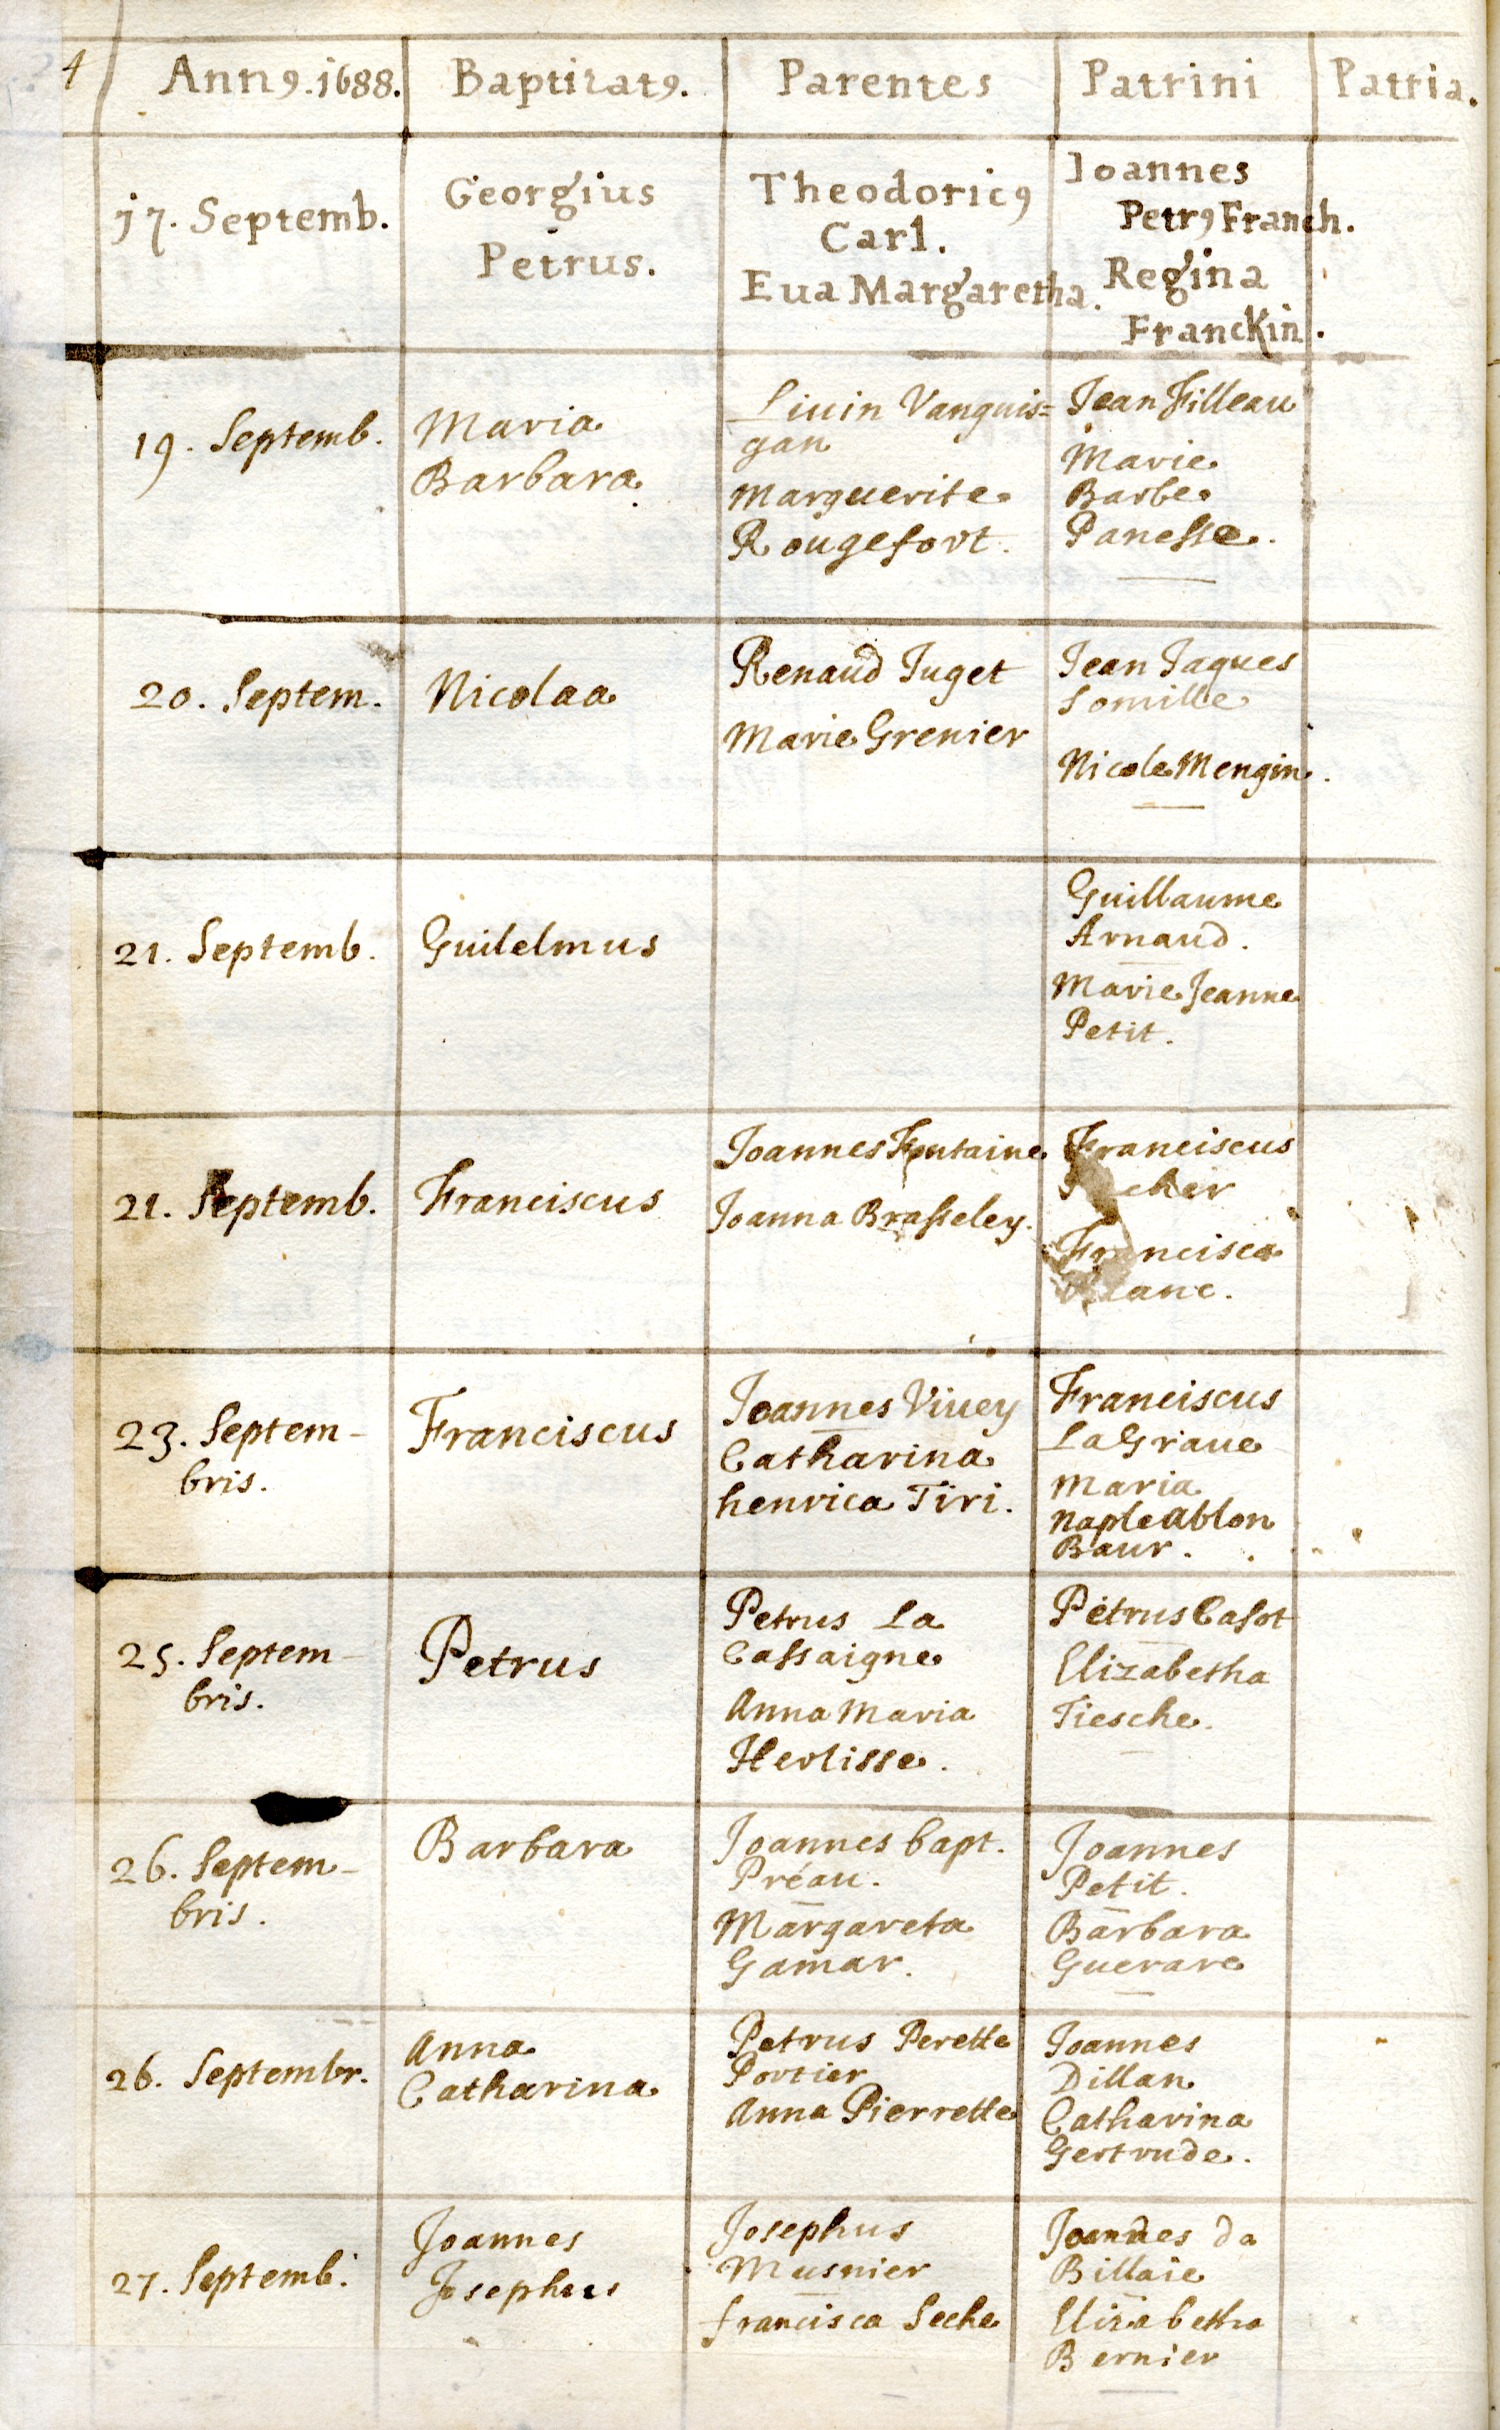 4
Annꝯ. 1688.
Baptizatꝯ.
Parentes
Patrini
Patria.
17. Septemb.
Georgius
Petrus.
Theodoricꝯ
Carl.
Eua Margaretha.
Joannes
Petrꝯ Franch.
Regina
Franckin.
19. Septemb.
Maria
Barbara
Liuin Vanguis=
gan
Marguerite
Rougefort.
Jean Filleau
Marie
Barbe
Panesse.
20. Septem.
Nicolaa
Renaud Juget
Marie Grenier
Jean Jaques
Somille
Nicole Mengin.
21. Septemb.
Guilelmus
Guillaume
Arnaud.
Marie Jeanne
Petit.
21. Septemb.
Franciscus
Joannes Fontaine
Joanna Brasseley.
Franciscus
Francisca
23. Septem-
bris.
Franciscus
Joannes Viuey
Catharina
henrica Tiri.
Franciscus
LaGraue
Maria
Napleablon
Baur.
25. Septem-
bris.
Petrus
Petrus La
Cassaigne
Anna Maria
Herlisse.
Petrus Casot
Elizabetha
Tiesche.
26. Septem-
bris.
Barbara
Joannes bapt.
Préau.
Margareta
Gamar.
Joannes
Petit.
Barbara
Guerare
26. Septembr.
Anna
Catharina
Petrus Perette
Portier
Anna Pierrette
Joannes
Dillan
Catharina
Gertrude.
27. Septemb.
Joannes
Josephus
Josephus
Musnier
francisca Seche
Joannes da
Billaie
Elizabetha
Bernier